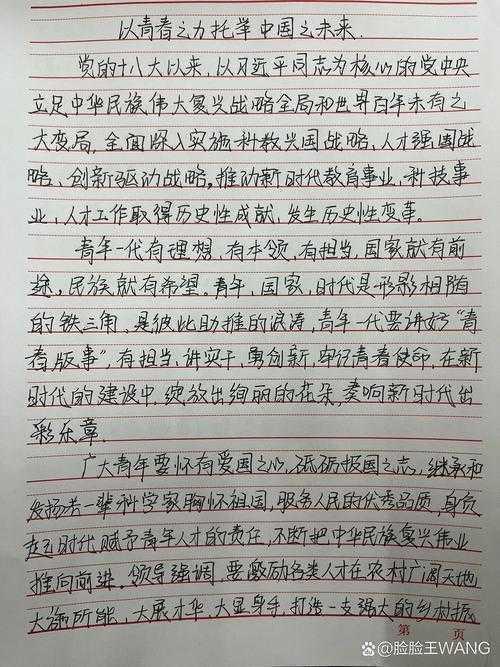 以青春之力托举中国之未来.
党的十八大以来,以习近平同志为核心的党中央
立足中华民族伟大复兴战略全局和世界百年未有之
大变局,全面深入实施科教兴国战略,人才强国战
略、创新驱动战略。推动新时代教育事业,科技事
业,人才工作取得历史性成就,发生历史性变革。
青年一代有理想,有本领,有担当,国家就有前
途,民族就有希望。青年,国家,时代是形影相随
的铁三角,是彼此助推的浪涛,青年一代要讲好“青
春版事”,有担当,讲实干,勇创新,牢记青春使命,在新
时代的建设中,绽放出绚丽的花朵,奏响新时代出
彩乐章.
广大青年要怀有爱国之心,砥砺报国之志,继承和
发扬老一辈科学家胸怀祖国,服务人民的优秀品质,肩负
起时代赋予青年人才的责任,不断把中华民族复兴伟业
推向前进。领导强调,要激励各类人才在农村广阔天地
大施所能,大展才华,大显身手,打造一支强大的乡村振
第 页
@脸脸王WANG